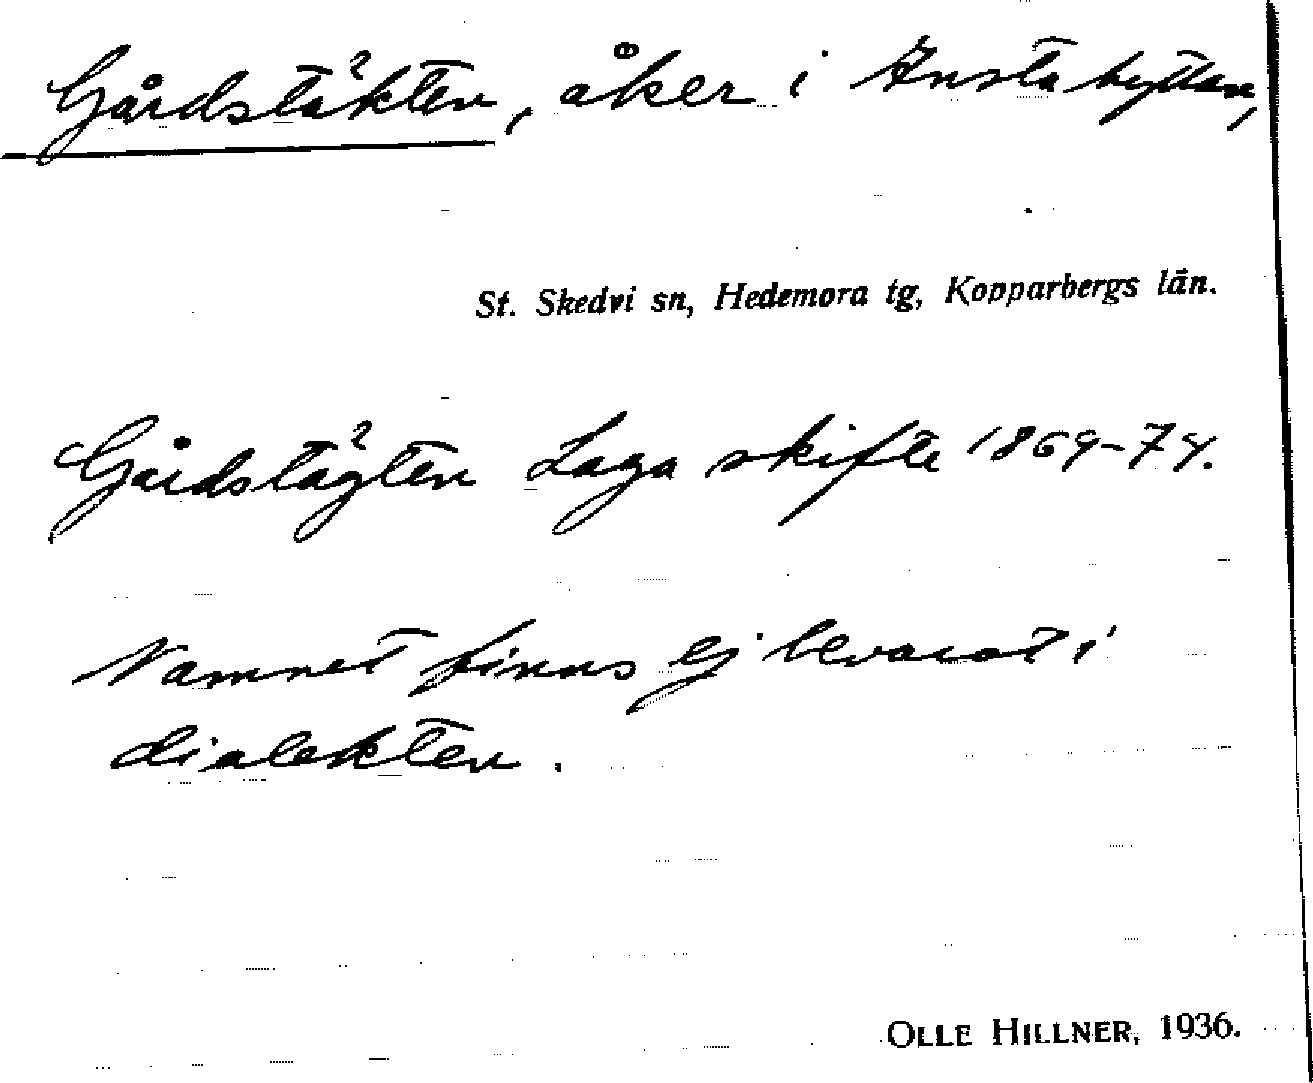 Gårdstäkten, åker i Knutshyttan,
St. Skedvi sn, Hedemora tg, Kopparbergs län.
Gårdstägten Laga skifte 1869-74.
Namnet finns ej bevarat i
dialekten.
OLLE HILLNER, 1936.